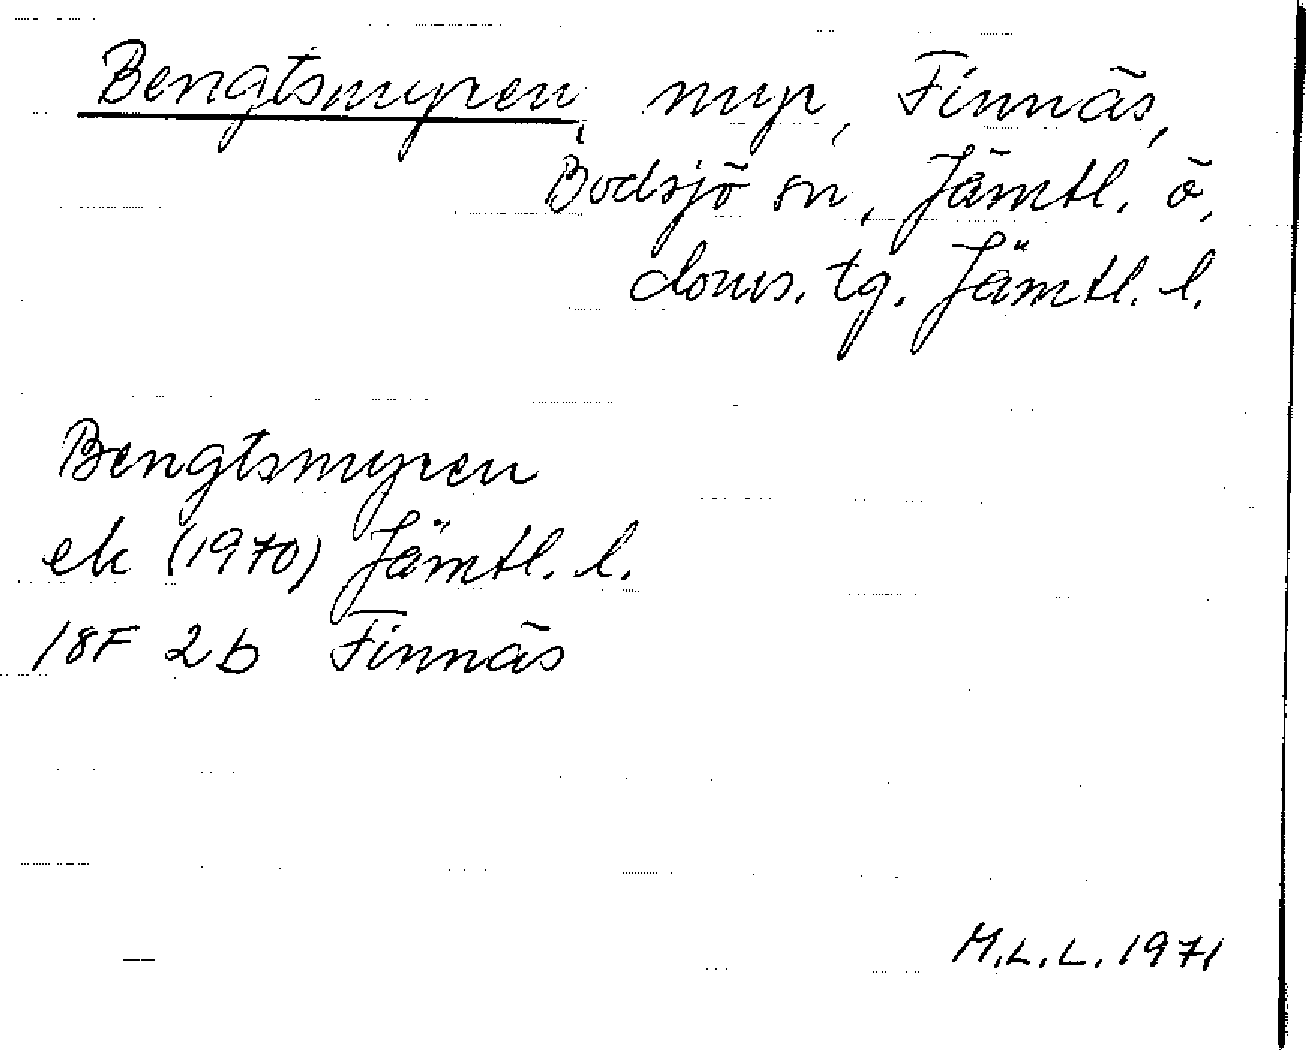 Bengtsmyren, myr, Finnäs,
Bodsjö sn, Jämtl. ö,
doms. tg. Jämtl. l.
Bengtsmyren
ek (1970) Jämtl. l.
18F 2b Finnäs
M.L.L. 1971